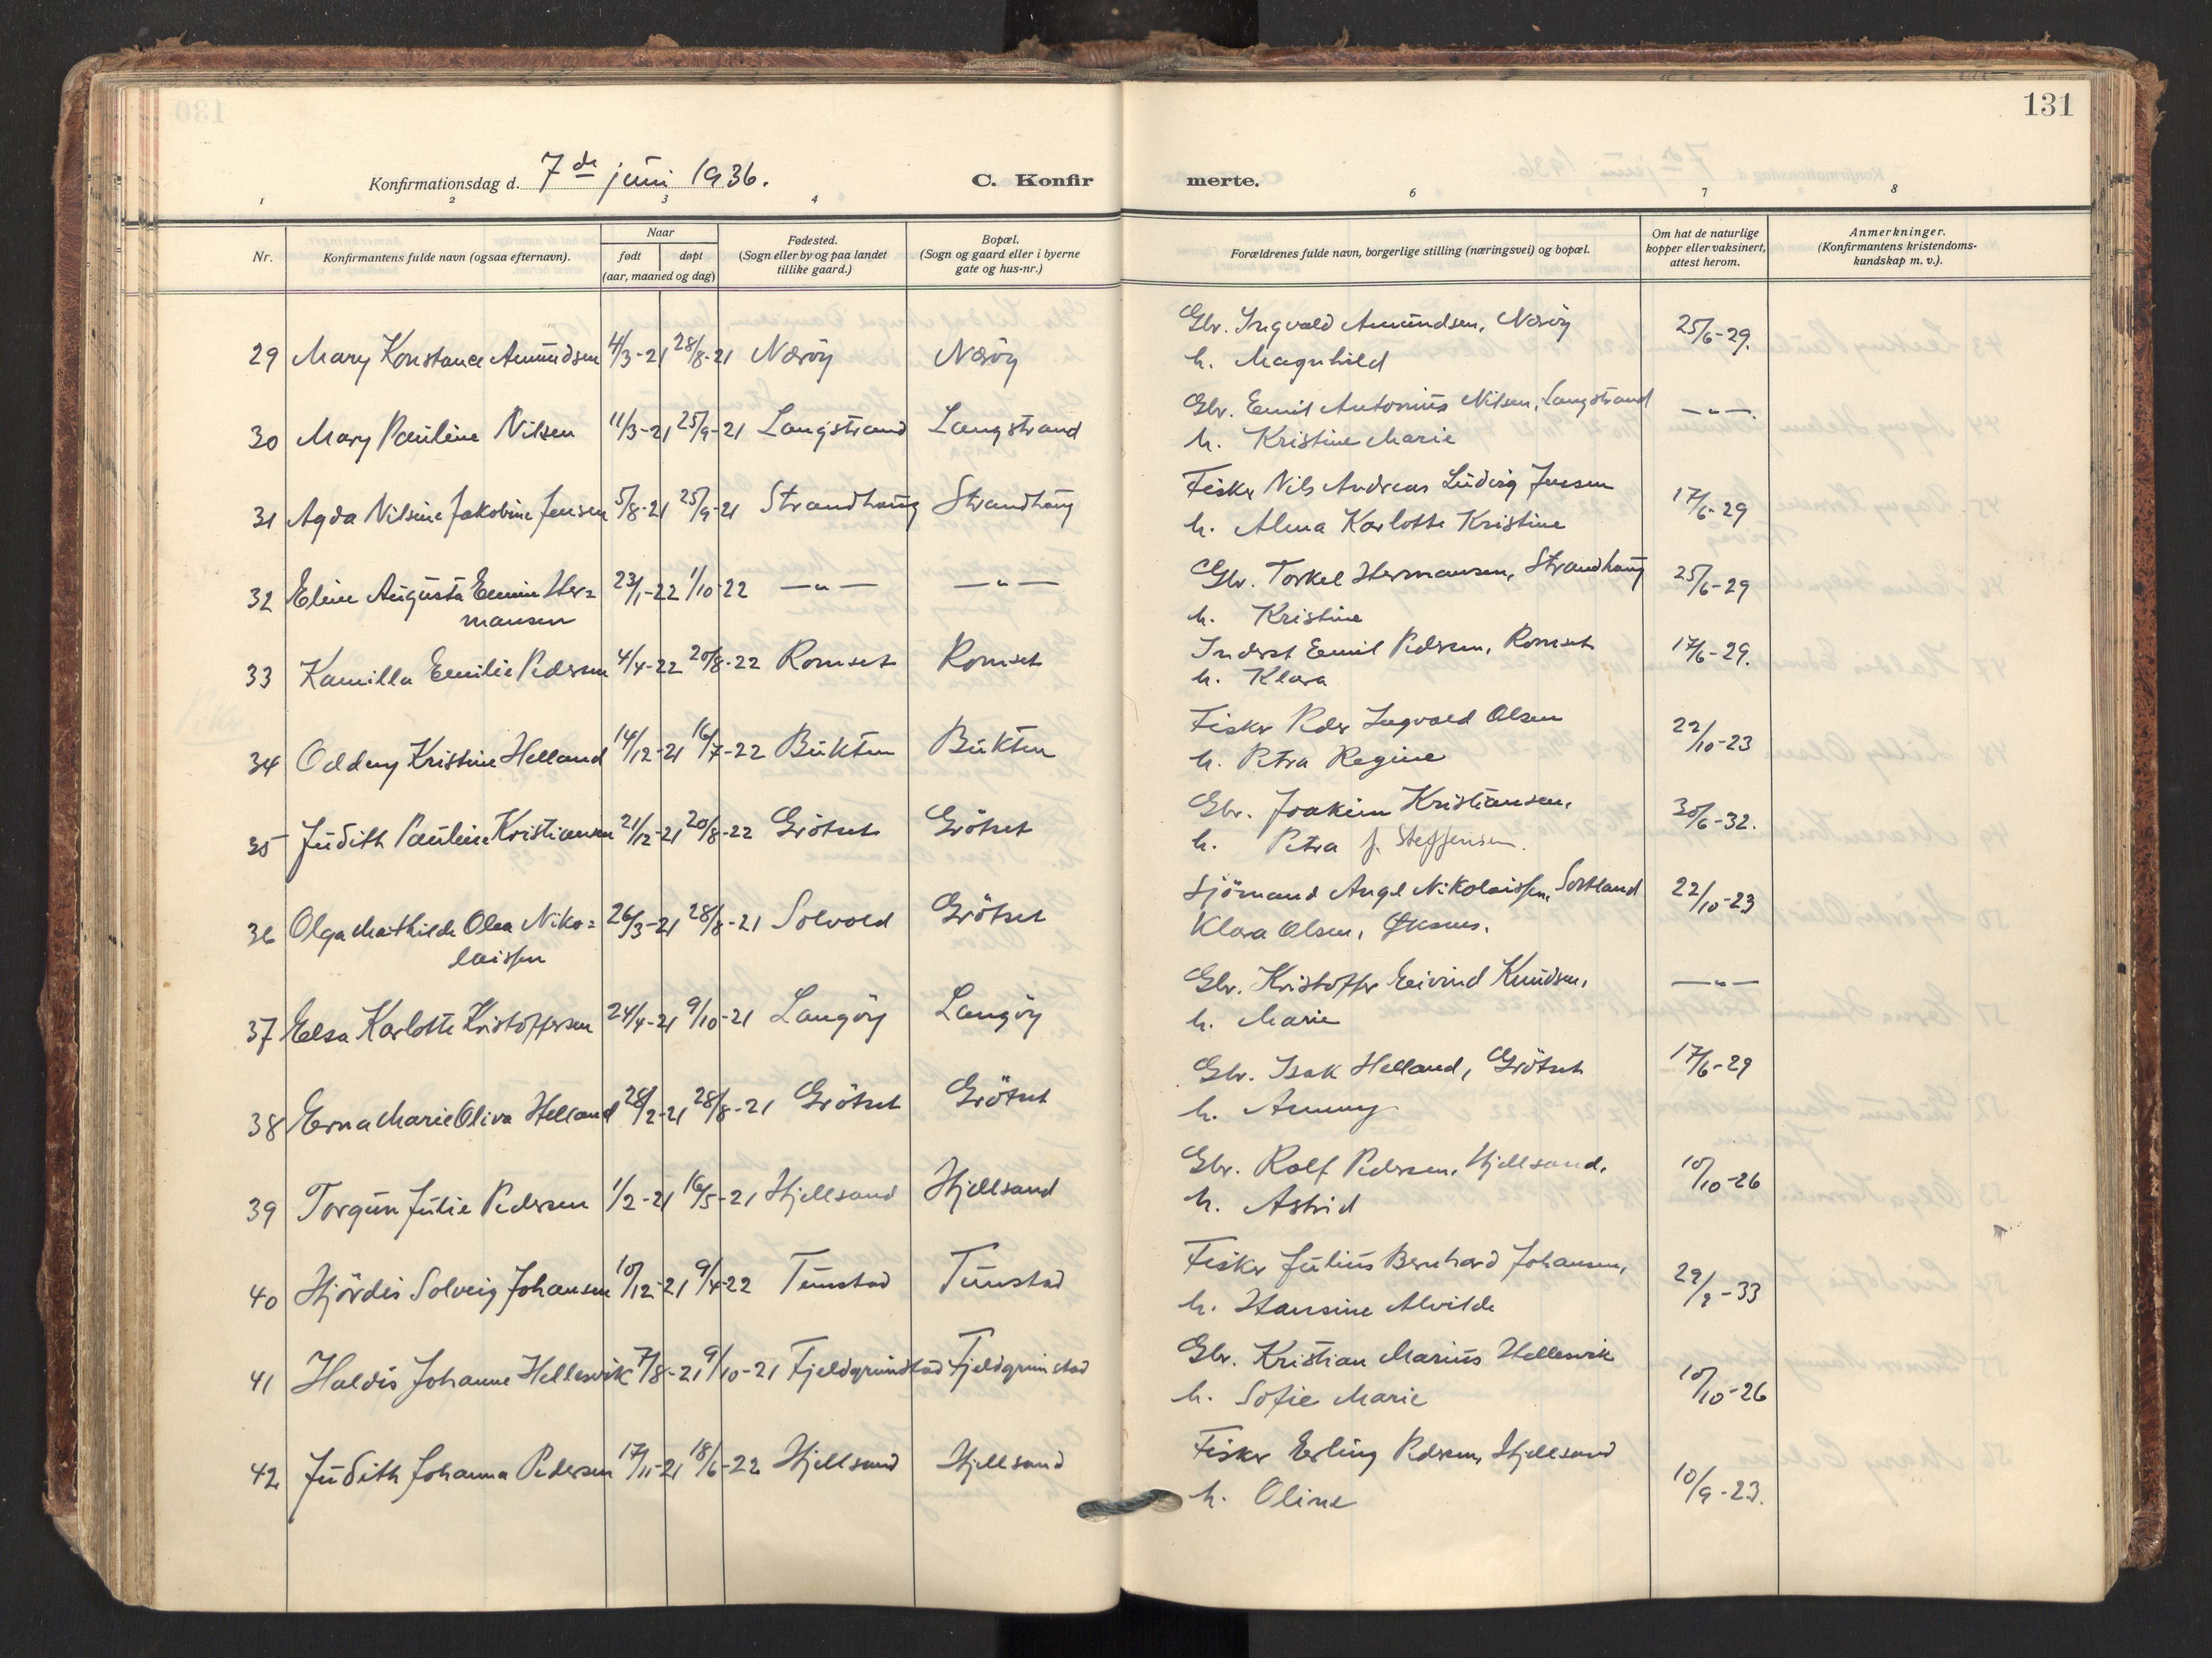 131
Konfirmationsdag d. 7de juni 1936. C. Konfir merte.
1 2 3 4 6 7 8
Nr. Konfirmantens fulde navn (ogsaa efternavn). Naar født døpt (aar, maaned og dag) Fødested. (Sogn eller by og paa landet tillike gaard.) Bopæl. (Sogn og gaard eller i byerne gate og hus-nr.) Forældrenes fulde navn, borgerlige stilling (næringsvei) og bopæl. Om hat de naturlige kopper eller vaksinert, attest herom. Anmerkninger. (Konfirmantens kristendoms-kundskap m. v.).
29 Mary Konstance Amundsen 4/3-21 28/8-21 Næröy Næröy Gbr. Ingvald Amundsen, Næröy 25/6-29.
h. Magnhild
30 Mary Pauline Nilsen 11/3-21 25/9-21 Langstrand Langstrand Gbr. Emil Antonius Nilsen, Langstrand —"—.
h. Kristine Marie
31 Agda Nilsine Jakobine Jensen 5/8-21 25/9-21 Strandhaug Strandhaug Fisker Nils Andreas Ludvig Jensen 17/6-29
h. Alma Karlotte Kristine
32 Eline Augusta Eemin Her= 23/1-22 1/10-22 —"— —"— Gbr. Torkel Hermansen, Strandhaug 25/6-29
mansen h. Kristine
33 Kamilla Emilie Pedersen 4/4-22 20/8-22 Romset Romset Inderst Emil Pedersen, Romset 17/6-29.
h. Klara
34 Oddny Kristine Helland 14/12-21 16/7-22 Bukten Bukten Fisker Peder Ingvald Olsen 22/10-23
h. Petra Regine
35 Judith Pauline Kristiansen 21/12-21 20/8-22 Grötset Grötset Gbr. Joakim Kristiansen, 30/6-32.
h. Petra f. Steffensen.
36 Olga Mathilde Olea Niko= 26/3-21 28/8-21 Solvold Grötset Sjömand Angel Nikolaissen, Sortland 22/10-23
laissen Klara Olsen, Øksnes.
37 Elsa Karlotte Kristoffersen 24/4-21 9/10-21 Langöy Langöy Gbr. Kristoffer Eivind Knudsen, —"—
h. Marie
38 Erna Marie Oliva Helland 28/2-21 28/8-21 Grötset Grötset Gbr. Isak Helland, Grötset 17/6-29
h. Ammy
39 Torgun Julie Pedersen 1/2-21 16/5-21 Hjellsand Hjellsand Gbr. Rolf Pedersen, Hjellsand, 10/10-26
h. Astrid
40 Hjördis Solveig Johansen 10/12-21 9/4-22 Tunstad Tunstad Fisker Julius Bernhard Johansen, 29/9-33
h. Hansine Alvilde
41 Haldis Johanne Hellesvik 7/8-21 9/10-21 Fjeldgrundstad Fjeldgrunstad Gbr. Kristian Marius Hellesvik 10/10-26
h. Sofie Marie
42 Judith Johanna Pedersen 17/11-21 18/6-22 Hjellsand Hjellsand Fisker Erling Pedersen, Hjellsand 10/9-23.
h. Oline